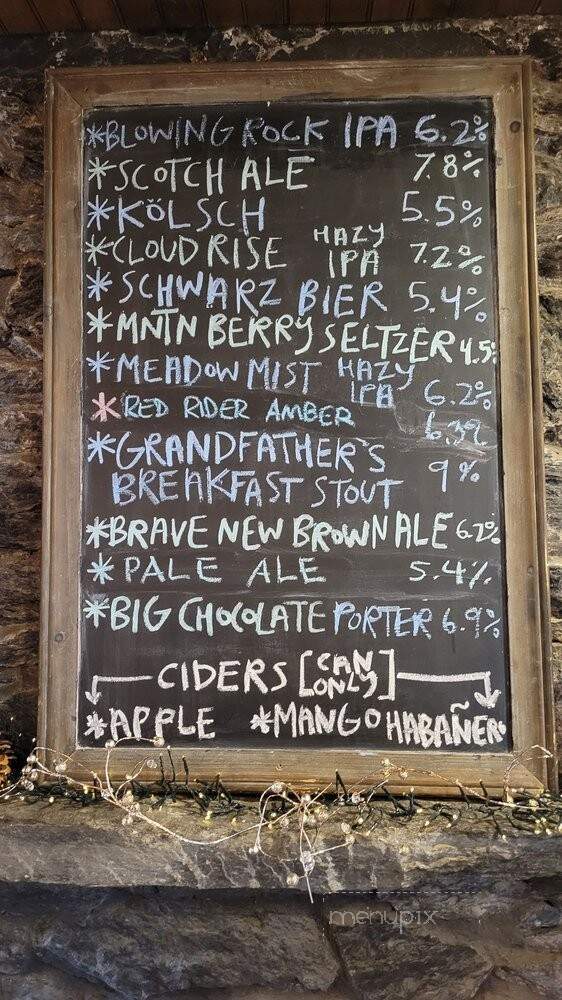 *BLOWING ROCK IPA 6.2%
*SCOTCH ALE 7.8%
*KÖLSCH 5.5%
*CLOUD RISE HAZY IPA 7.2%
*SCHWARZ BIER 5.4%
*MNTN BERRY SELTZER 4.5%
*MEADOW MIST HAZY IPA 6.2%
*RED RIDER AMBER 6.3%
*GRANDFATHER'S
BREAKFAST STOUT 9%
*BRAVE NEW BROWN ALE
*PALE ALE 5.4%
*BIG CHOCOLATE PORTER 6.9%
CIDERS [CAN ONLY]
*APPLE *MANGO HABAÑERO
menupix